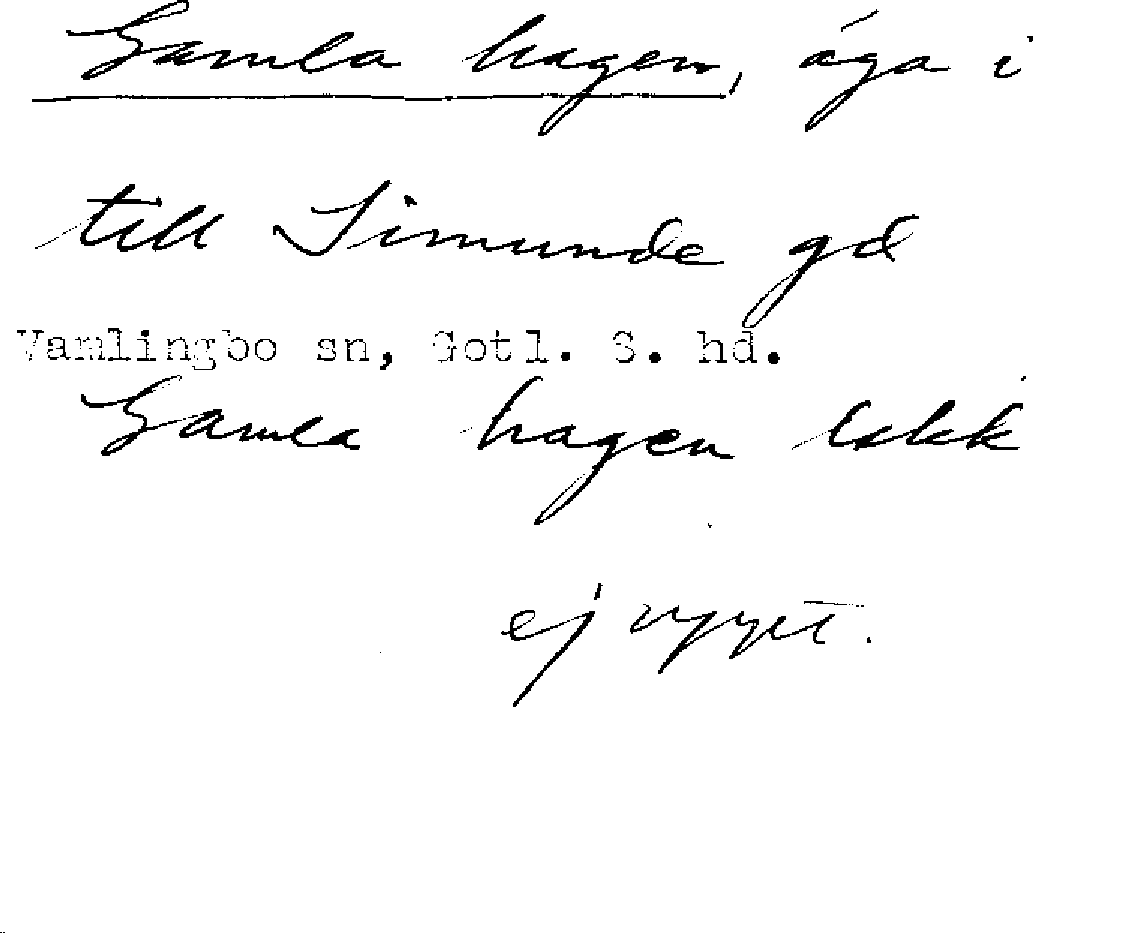 Gamla hagen, äga i
till Simunde gd
Vamlingbo sn, Gotl. S. hd.
Gamla hagen
ej